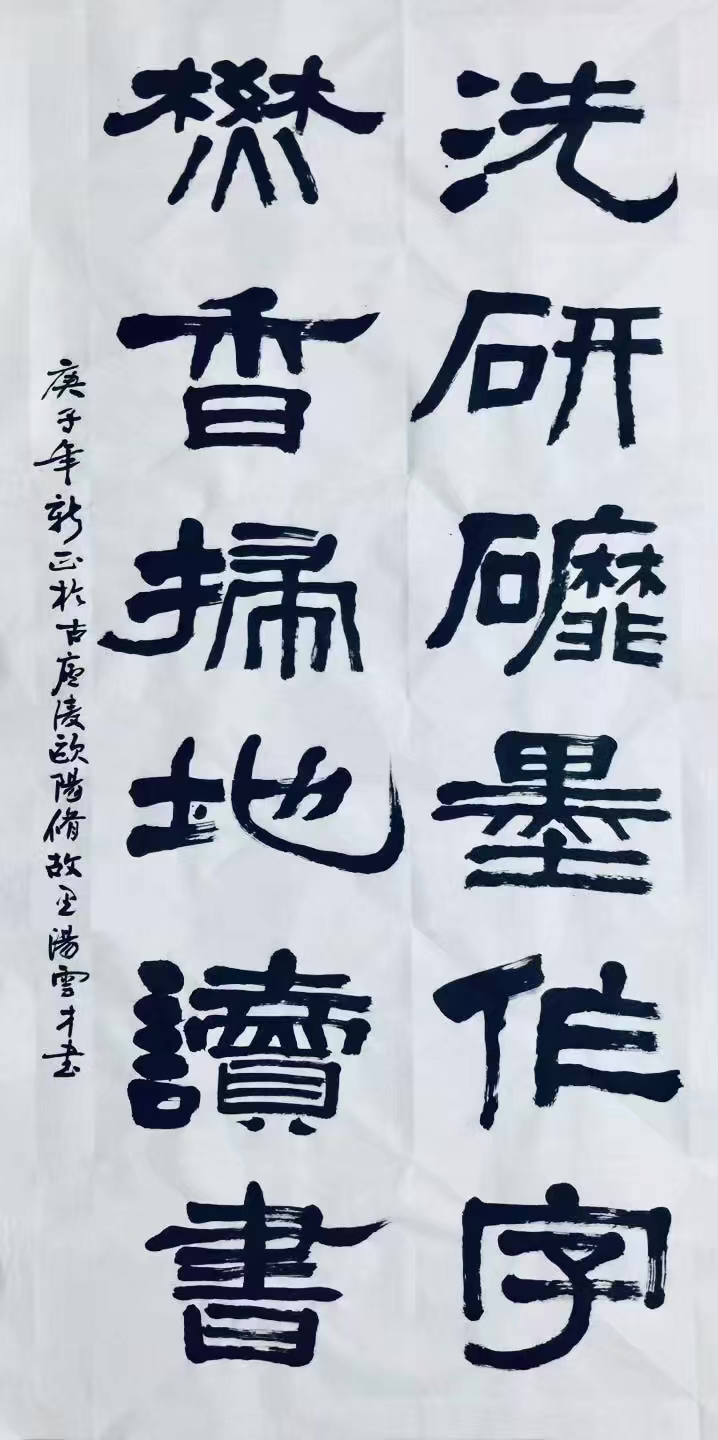 洗研䃺墨作字
燓香掃地讀書
庚子年新正於古廬陵歐陽脩故里湯雲才書